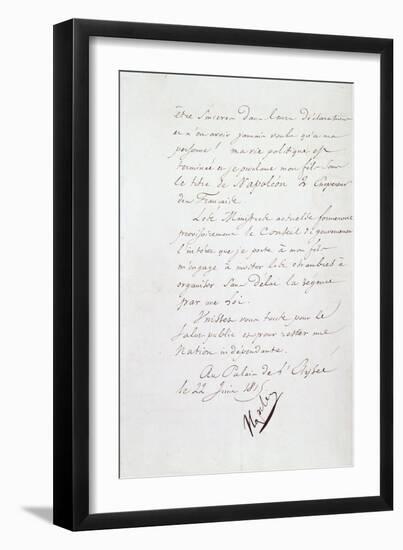 être sincères dans leurs déclarations
et n'en avoir jamais voulu qu'à ma
personne! ma vie politique est
terminée et je proclame mon fils sous
le titre de Napoléon 2 Empereur
des Français.
Les Ministres actuels formeront
provisoirement le Conseil de gouvernement
L'intérêt que je porte à mon fils
m'engage à inviter les chambres à
organiser sans délai la régence
par une loi.
Unissez vous tous pour le
salut public et pour rester une
Nation indépendante.
Au Palais de l'Elysée
le 22 Juin 1815